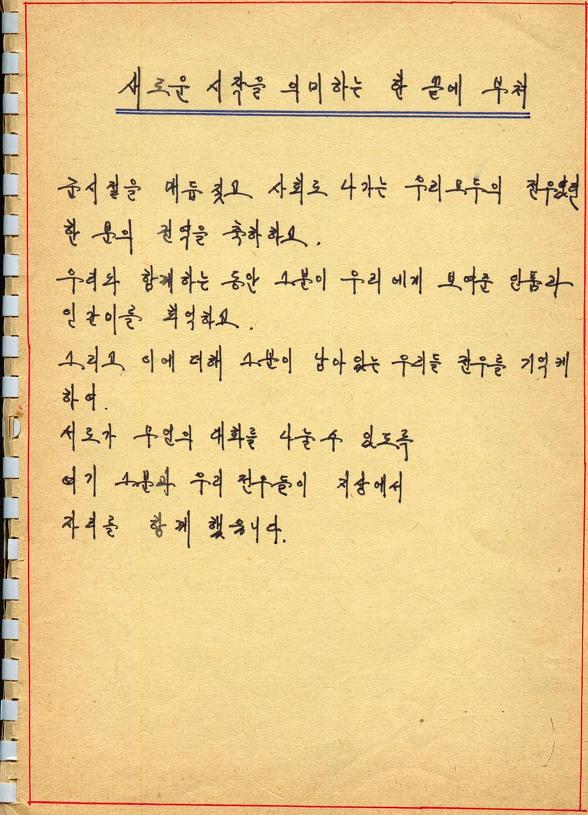 새로운 시작을 의미하는 한 끝에 부쳐
군시절을 매듭짓고 사회로 나가는 우리모두의 전우였던
한 분의 전역을 축하하고.
우리와 함께하는 동안 그분이 우리에게 보여준 인품과
인간미를 회억하고.
그리고 이에 더해 그분이 남아있는 우리들 전우를 기억케
하여.
서로가 무언의 대화를 나눌 수 있도록
여기 그분과 우리 전우들이 지상에서
자리를 함께 했읍니다.